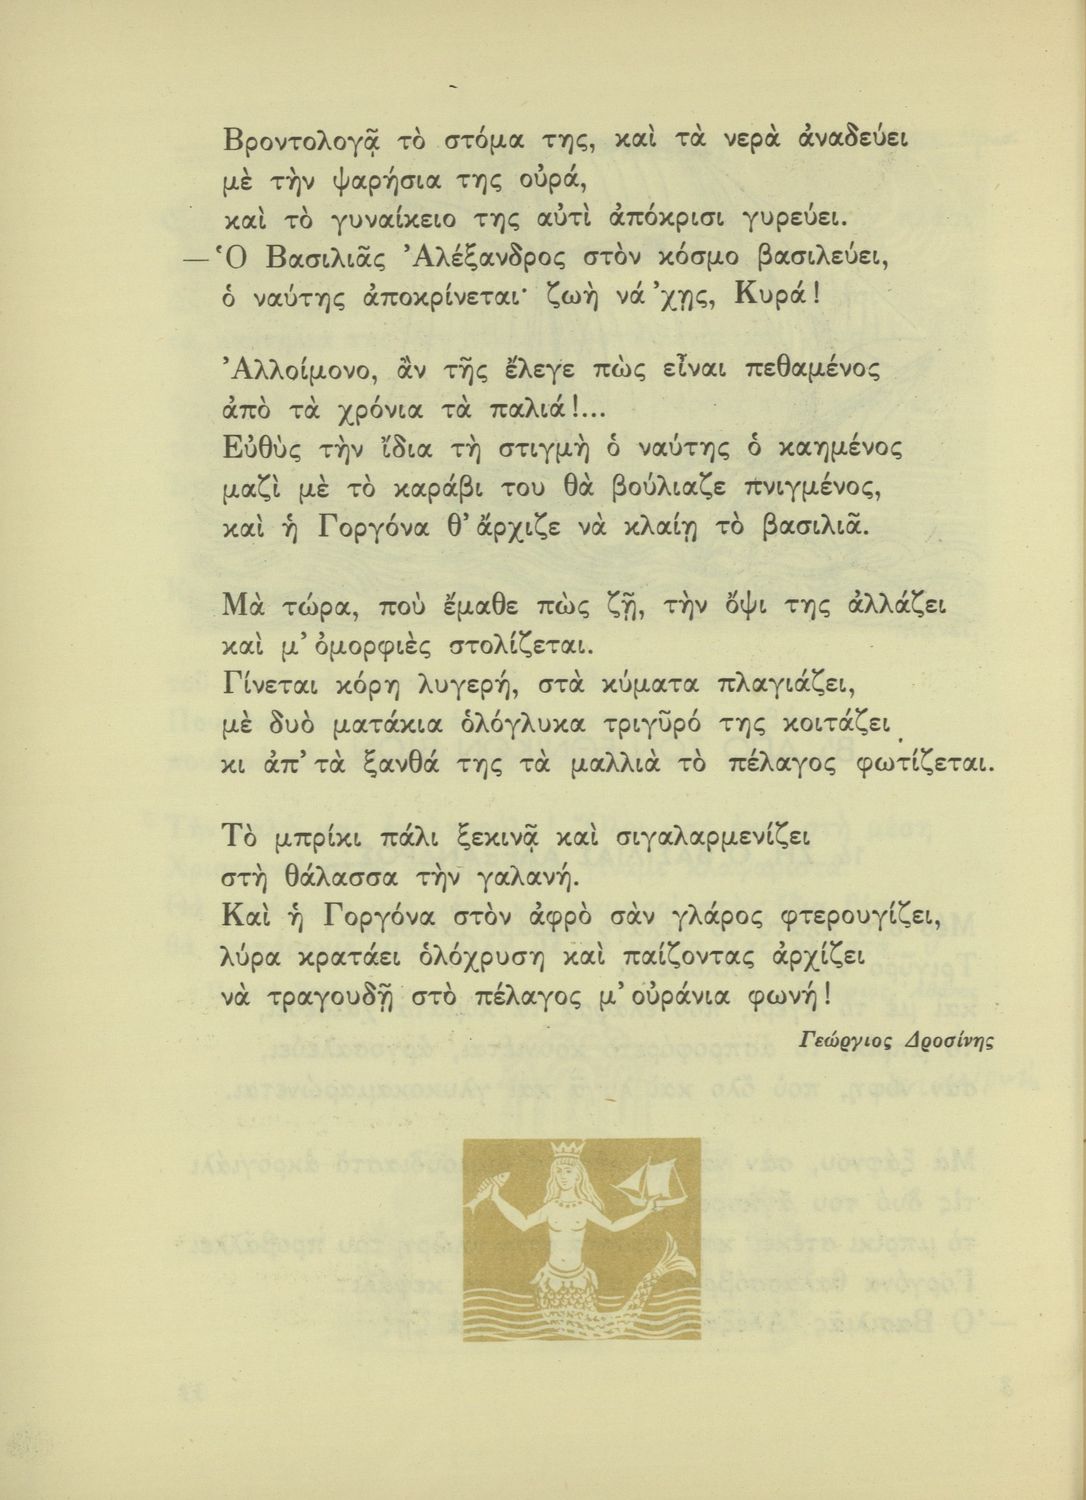 Βροντολογᾷ τὸ στόμα της, καὶ τὰ νερὰ ἀναδεύει
μὲ τὴν ψαρήσια της οὐρά,
καὶ τὸ γυναίκειο της αὐτὶ ἀπόκρισι γυρεύει.
—Ὁ Βασιλιᾶς Ἀλέξανδρος στὸν κόσμο βασιλεύει,
ὁ ναύτης ἀποκρίνεται· ζωὴ νά ’χῃς, Κυρά!
Ἀλλοίμονο, ἂν τῆς ἔλεγε πὼς εἶναι πεθαμένος
ἀπὸ τὰ χρόνια τὰ παλιά!...
Εὐθὺς τὴν ἴδια τὴ στιγμὴ ὁ ναύτης ὁ καημένος
μαζὶ μὲ τὸ καράβι του θὰ βούλιαζε πνιγμένος,
καὶ ἡ Γοργόνα θ’ ἄρχιζε νὰ κλαίῃ τὸ βασιλιᾶ.
Μὰ τώρα, ποὺ ἔμαθε πὼς ζῇ, τὴν ὄψι της ἀλλάζει
καὶ μ’ ὀμορφιὲς στολίζεται.
Γίνεται κόρη λυγερή, στὰ κύματα πλαγιάζει,
μὲ δυὸ ματάκια ὁλόγλυκα τριγῦρό της κοιτάζει
κι ἀπ’ τὰ ξανθά της τὰ μαλλιὰ τὸ πέλαγος φωτίζεται.
Τὸ μπρίκι πάλι ξεκινᾷ καὶ σιγαλαρμενίζει
στὴ θάλασσα τὴν γαλανή.
Καὶ ἡ Γοργόνα στὸν ἀφρὸ σὰν γλάρος φτερουγίζει,
λύρα κρατάει ὁλόχρυση καὶ παίζοντας ἀρχίζει
νὰ τραγουδῇ στὸ πέλαγος μ’ οὐράνια φωνή!
Γεώργιος Δροσίνης